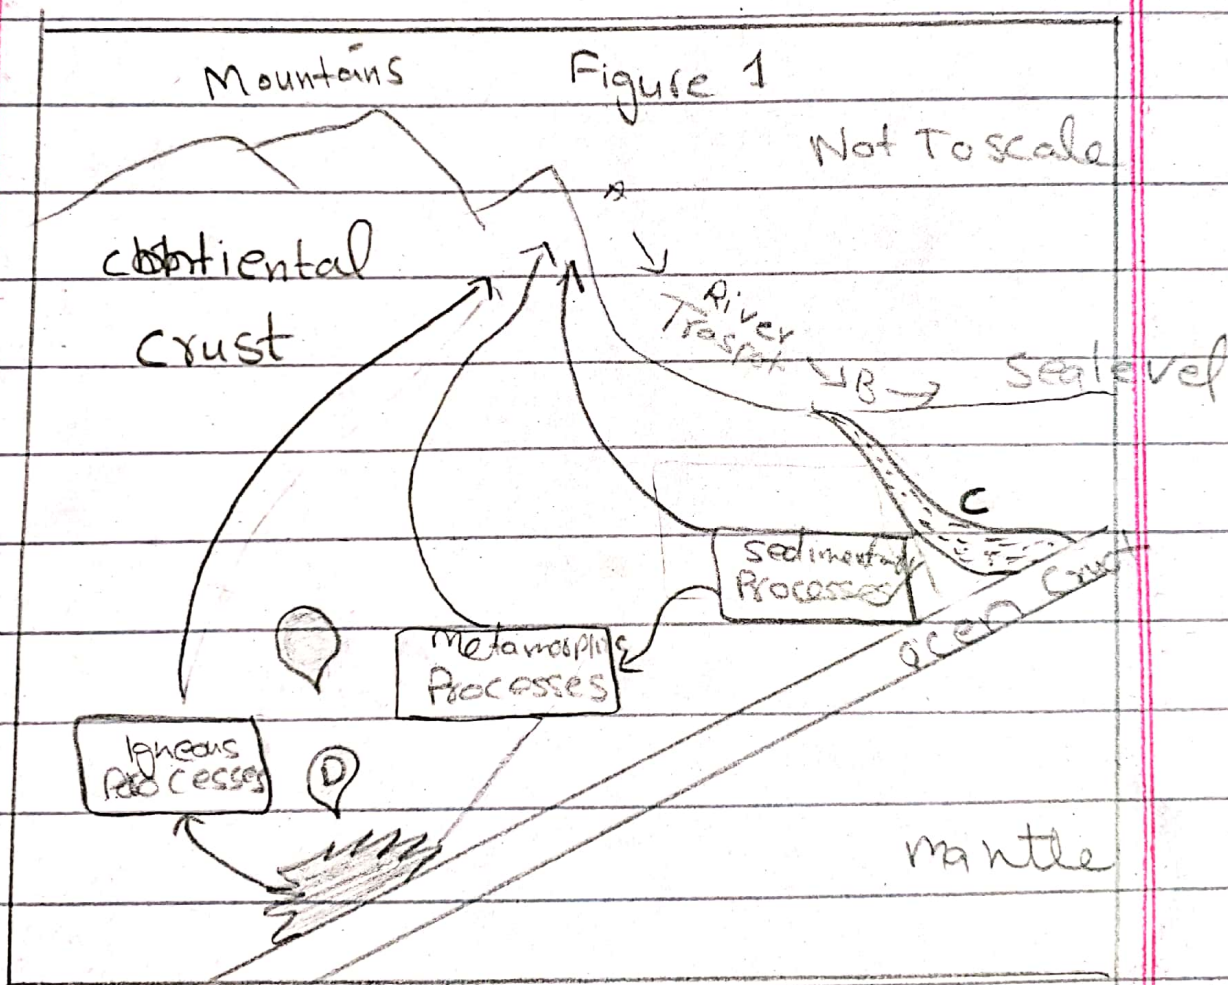 Mountains
Figure 1
Not To scale
A
continental
Crust
River
Traspot
B
Sealevel
C
Sedimentary
Processes
ocen Crust
Metamorphic
Processes
Igneous
Processes
D
mantle